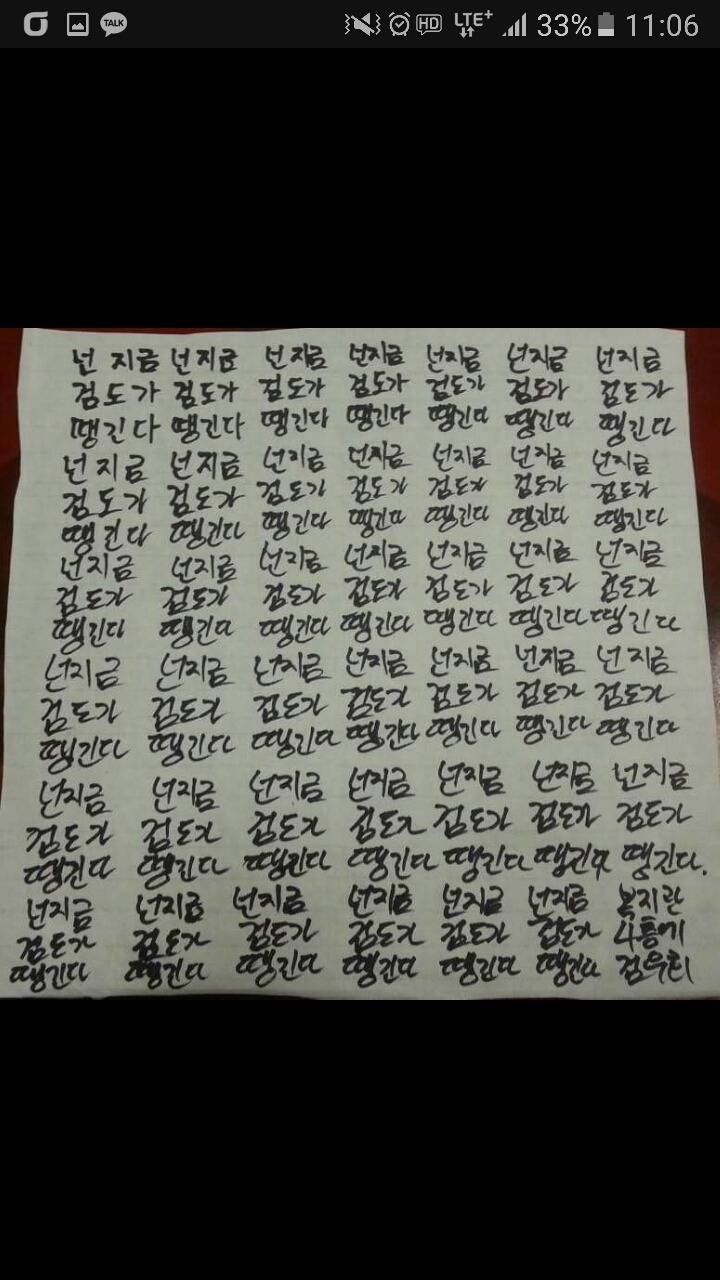 TALK HD LTE+ 33% 11:06
넌 지금 넌지금 넌지금 넌지금 넌지금 넌지금 넌지금
검도가 검도가 검도가 검도가 검도가 검도가 검도가
땡긴다 땡긴다 땡긴다 땡긴다 땡긴다 땡긴다 땡긴다
넌지금 넌지금 넌지금 넌지금 넌지금 넌지금 넌지금
검도가 검도가 검도가 검도가 검도가 검도가 검도가
땡긴다 땡긴다 땡긴다 땡긴다 땡긴다 땡긴다 땡긴다
넌지금 넌지금 넌지금 넌지금 넌지금 넌지금 넌지금
검도가 검도가 검도가 검도가 검도가 검도가 검도가
땡긴다 땡긴다 땡긴다 땡긴다 땡긴다 땡긴다 땡긴다
넌지금 넌지금 넌지금 넌지금 넌지금 넌지금 넌지금
검도가 검도가 검도가 검도가 검도가 검도가 검도가
땡긴다 땡긴다 땡긴다 땡긴다 땡긴다 땡긴다 땡긴다
넌지금 넌지금 넌지금 넌지금 넌지금 넌지금 넌지금
검도가 검도가 검도가 검도가 검도가 검도가 검도가
땡긴다 땡긴다 땡긴다 땡긴다 땡긴다 땡긴다 땡긴다.
넌지금 넌지금 넌지금 넌지금 넌지금 넌지금 복지관
검도가 검도가 검도가 검도가 검도가 검도가 4층에
땡긴다 땡긴다 땡긴다 땡긴다 땡긴다 땡긴다 검우회